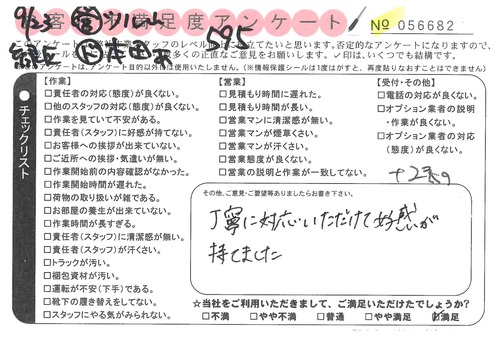 9/23
客 満足度アンケート
№ 056682
595
このアンケートは
のレベル向上に役立てたいと思います。否定的なアンケートになりますので、
多くの正直なご意見をお願いします。✓印は、いくつでも結構です。
アンケートは、アンケート目的以外は使用いたしません。(※情報保護シールは1度はがすと、再度貼りなおすことはできません)
チェックリスト
【作業】
□責任者の対応(態度)が良くない。
□他のスタッフの対応(態度)が良くない。
□作業を見ていて不安がある。
□責任者(スタッフ)に好感が持てない。
□お客様への挨拶が出来ていない。
□ご近所への挨拶・気遣いが無い。
□作業開始前の内容確認がなかった。
□作業開始時間が遅れた。
□荷物の取り扱いが雑である。
□お部屋の養生が出来ていない。
□作業時間が長すぎる。
□責任者(スタッフ)に清潔感が無い。
□責任者(スタッフ)が汗くさい。
□トラックが汚い。
□梱包資材が汚い。
□運転が不安(下手)である。
□靴下の履き替えをしてない。
□スタッフにやる気がみられない。
【営業】
□見積もり時間に遅れた。
□見積もり時間が長い。
□営業マンに清潔感が無い。
□営業マンが煙草くさい。
□営業マンが汗くさい。
□営業態度が良くない。
□営業の説明と作業が一致してない。
【受付・その他】
□電話の対応が良くない。
□オプション業者の説明・作業が良くない。
□オプション業者の対応(態度)が良くない。
その他、ご意見・ご要望等ありましたらお書き下さい。
丁寧に対応いただけて好感が
持てました
☆当社をご利用いただきまして、ご満足いただけたでしょうか?
□不満 □やや不満 □普通 □やや満足 ☑満足